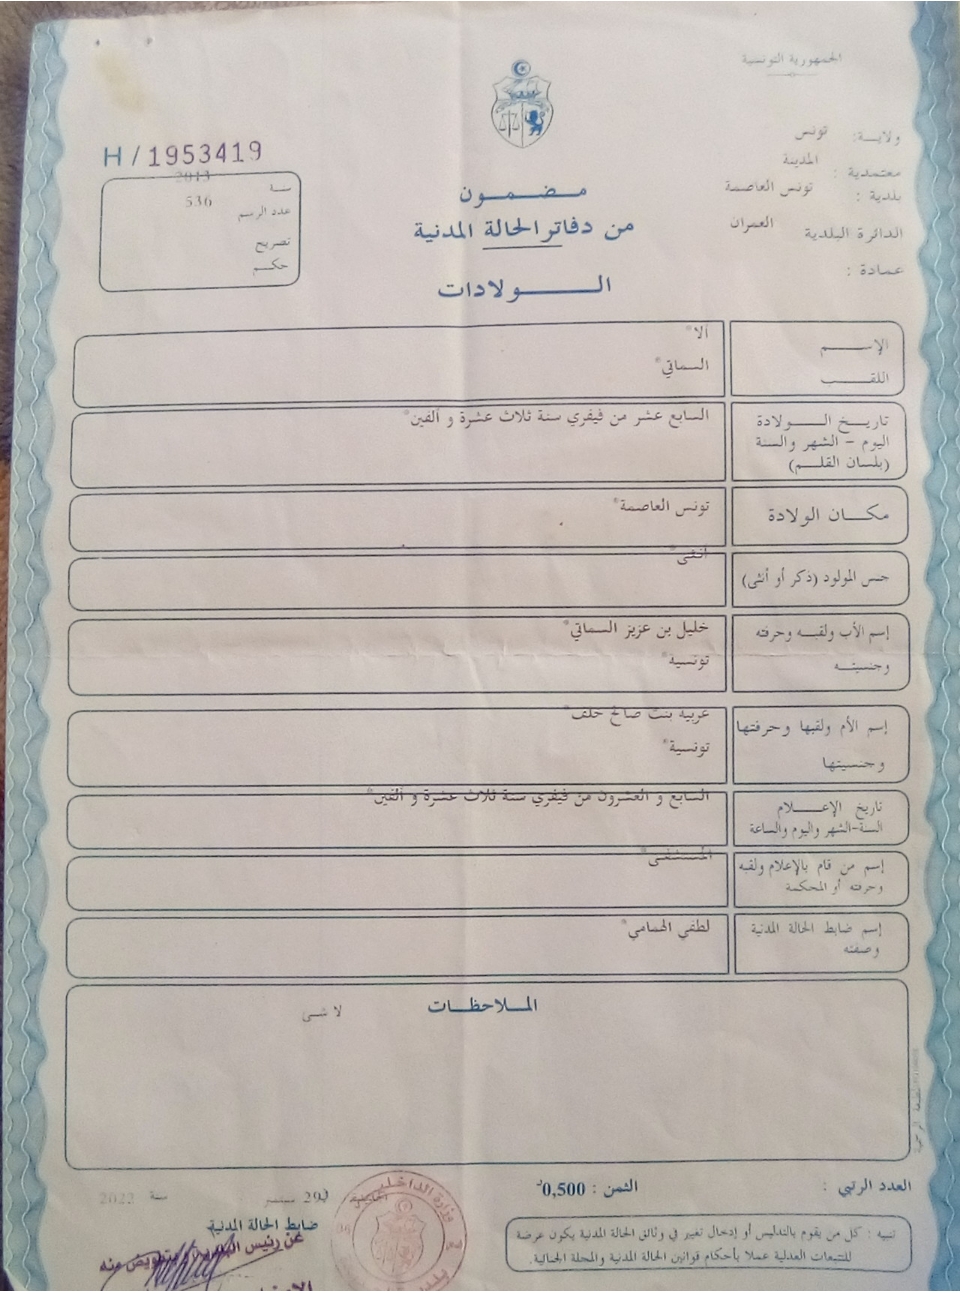 الجمهورية التونسية
ولاية: تونس
معتمدية : المدينة
بلدية : تونس العاصمة
الدائرة البلدية العمران
عمادة :
H / 1953419
سنة 2013
عدد الرسم 536
تصريح
حكم
مضمون
من دفاتر الحالة المدنية
الولادات
الإسم آلا*
اللقب السماتي*
تاريخ الولادة
اليوم - الشهر والسنة
(بلسان القلم)
السابع عشر من فيفري سنة ثلاث عشرة و ألفين*
مكان الولادة تونس العاصمة*
جنس المولود (ذكر أو أنثى) أنثى*
إسم الأب ولقبه وحرفته خليل بن عزيز السماتي*
وجنسيته تونسية*
إسم الأم ولقبها وحرفتها عربية بنت صالح خلف*
وجنسيتها تونسية*
تاريخ الإعلام
السنة-الشهر واليوم والساعة
السابع و العشرون من فيفري سنة ثلاث عشرة و ألفين*
إسم من قام بالإعلام ولقبه
وحرفته أو المحكمة
المستشفى*
إسم ضابط الحالة المدنية
وصفته
لطفي الحمامي*
الملاحظات
لا شئ
العدد الرتبي :
الثمن : 0,500د
تنبيه : كل من يقوم بالتدليس أو إدخال تغيير في وثائق الحالة المدنية يكون عرضة
للتتبعات العدلية عملا بأحكام قوانين الحالة المدنية والمجلة الجنائية.
في 29 سبتمبر سنة 2022
ضابط الحالة المدنية
عن رئيس البلدية وبتفويض منه
وزارة الداخلية